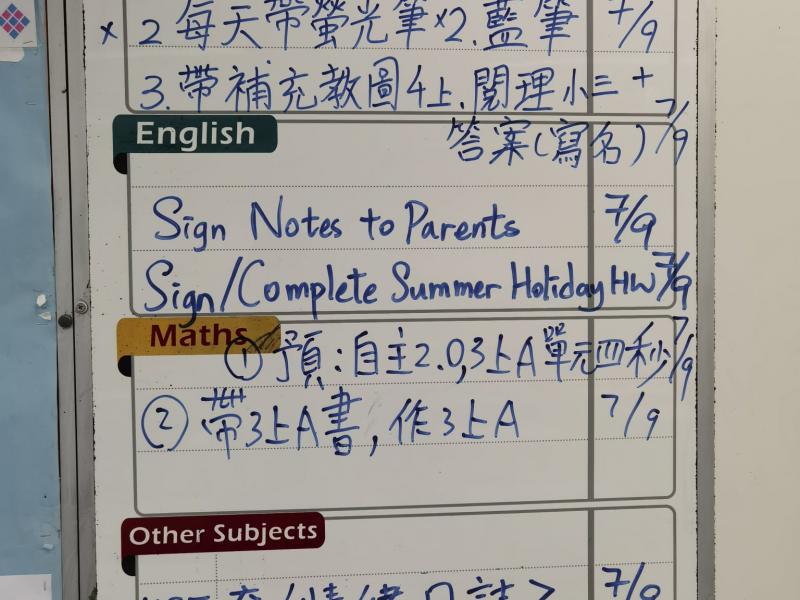 x 2. 每天帶螢光筆x2. 藍筆 7/9
3. 帶補充教圖4上. 閱理小三 + 7/9
English 答案(寫名) 7/9
Sign Notes to Parents 7/9
Sign/Complete Summer Holiday HW 7/9
Maths
① 預:自主2.0,3上A單元四秒 7/9
② 帶3上A書, 作3上A 7/9
Other Subjects
7/9